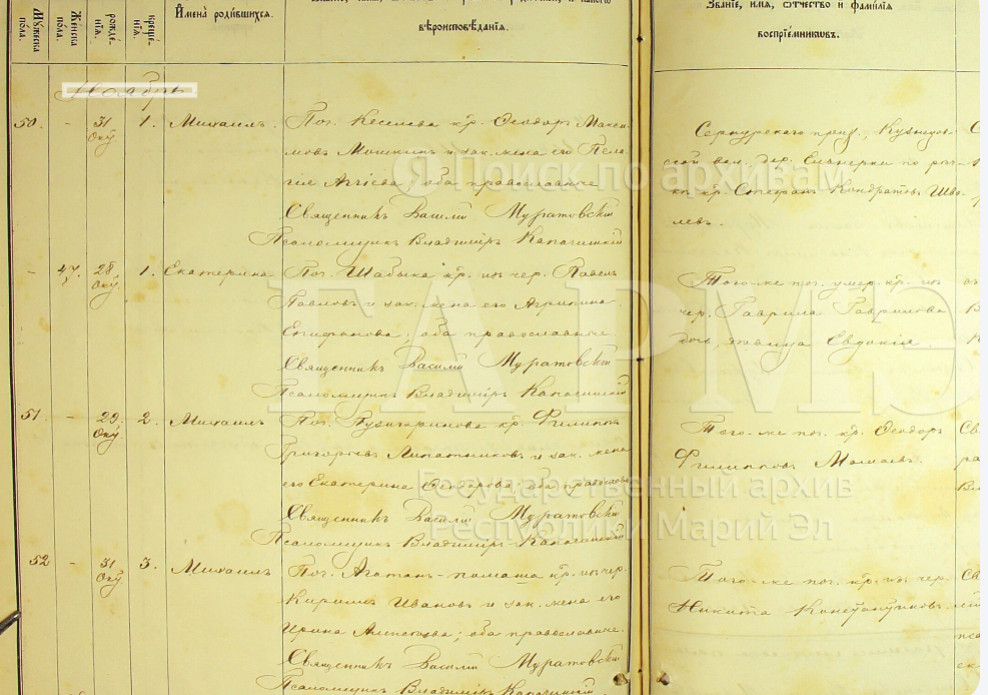 Мужеска пола.
Женска пола.
рожденія.
крещенія.
Имена родившихся.
вѣроисповѣданія.
Званіе, имя, отчество и фамилія
воспріемниковъ.
Ноябрь
50. - 31 Окт 1. Михаилъ. Поч. кр. Ѳеодоръ Макси-
мовъ Мошкинъ и зак. жена его Пела-
гія оба православные
Священникъ Василій Муратовскій
Псаломщикъ Владиміръ
Сернурскаго прих., Кузнецов-
ской вол., дер.
кр. Стефанъ Кондратовъ
левъ.
- 47. 28 Окт 1. Екатерина Поч. кр. изъ чер. Павелъ
Павловъ и зак. жена его Агрипина
Епифанова, оба православные
Священникъ Василій Муратовскій
Псаломщикъ Владиміръ
Того-же поч. умер. кр. из
чер. Гаврила Гаврилова
дочь дѣвица Евдокія.
51 - 29 Окт 2. Михаилъ Поч. кр. Филиппъ
Григорьевъ и зак. жена
его Екатерина Ѳеодорова, оба православ
Священникъ Василій Муратовскій
Псаломщикъ Владиміръ
Того-же поч. кр. Ѳеодоръ
Филипповъ
52 - 31 Окт 3. Михаилъ Поч. кр. изъ чер.
Кирилъ Ивановъ и зак. жена его
Ирина оба православные.
Священникъ Василій Муратовскій
Псаломщикъ Владиміръ
Того-же поч. кр. из чер.
Никита
Я Поиск по архивам
ГАРМЭ
Государственный архив
Республики Марий Эл